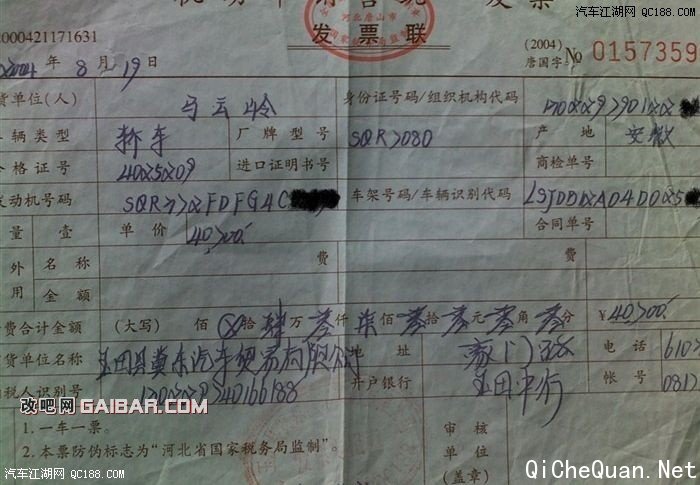 汽车江湖网 QC188.COM
机动车销售统一发票
河北唐山市
发票联
000421171631
(2004)
唐国字 No 0157359
2004 年 8 月 19 日
货单位(人) 马云岭 身份证号码/组织机构代码
车辆类型 轿车 厂牌型号 SQR7080 产地 安徽
合格证号 4025209 进口证明书号 商检单号
发动机号码 车架号码/车辆识别代码
量 壹 单价 40700 合同单号
外 名称 费 费
用 金额
费合计金额 (大写) 佰 ⊗ 拾 肆 万 零 仟 柒 佰 零 拾 零 元 零 角 零 分 ¥40700
货单位名称 玉田县冀东汽车贸易有限公司 地址 电话 610
纳税人识别号 开户银行 玉田中行 帐号 0812
1. 一车一票。
2. 本票防伪标志为“河北省国家税务局监制”。
审核
单位
(盖章)
改吧网 GAIBAR.COM
汽车江湖网 QC188.COM
QiCheQuan.Net